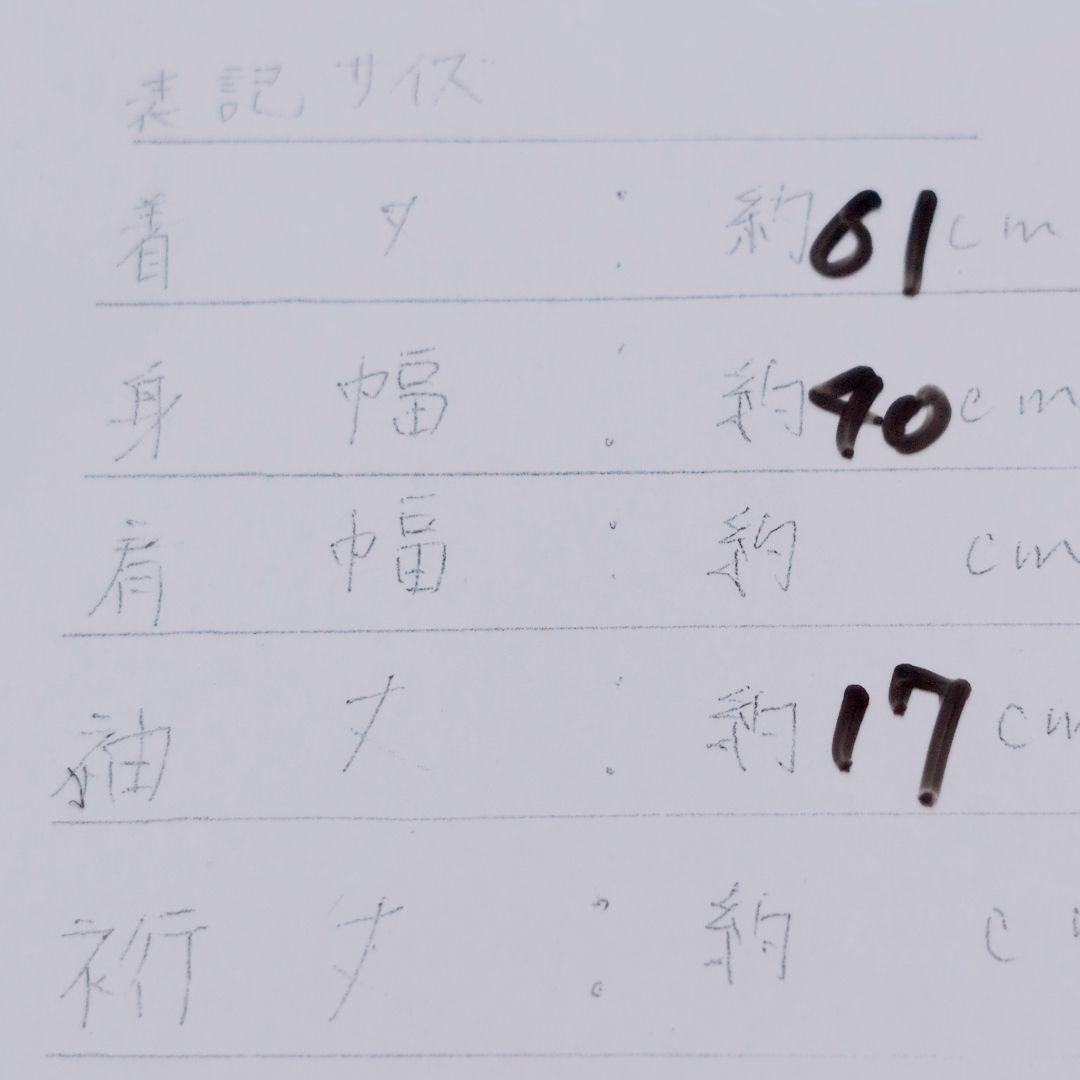 表記サイズ
着丈：約61cm
身幅：約40cm
肩幅：約　cm
袖丈：約17cm
裄丈：約　c